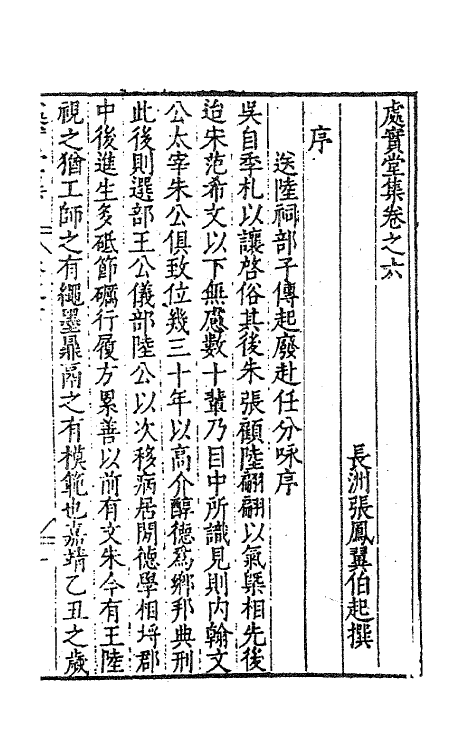 處實堂集卷之六
長洲張鳳翼伯起撰
序
送陸祠部子傳起廢赴任分咏序
吳自季札以讓啓俗其後朱張顧陸翩翩以氣槩相先後
迨宋范希文以下無慮數十輩乃目中所識見則内翰文
公太宰朱公俱致位幾三十年以高介醇德爲鄉邦典刑
此後則選部王公儀部陸公以次移病居閒德學相埒郡
中後進生多砥節礪行履方累善以前有文朱今有王陸
視之猶工師之有繩墨鼎鬲之有模範也嘉靖乙丑之歲